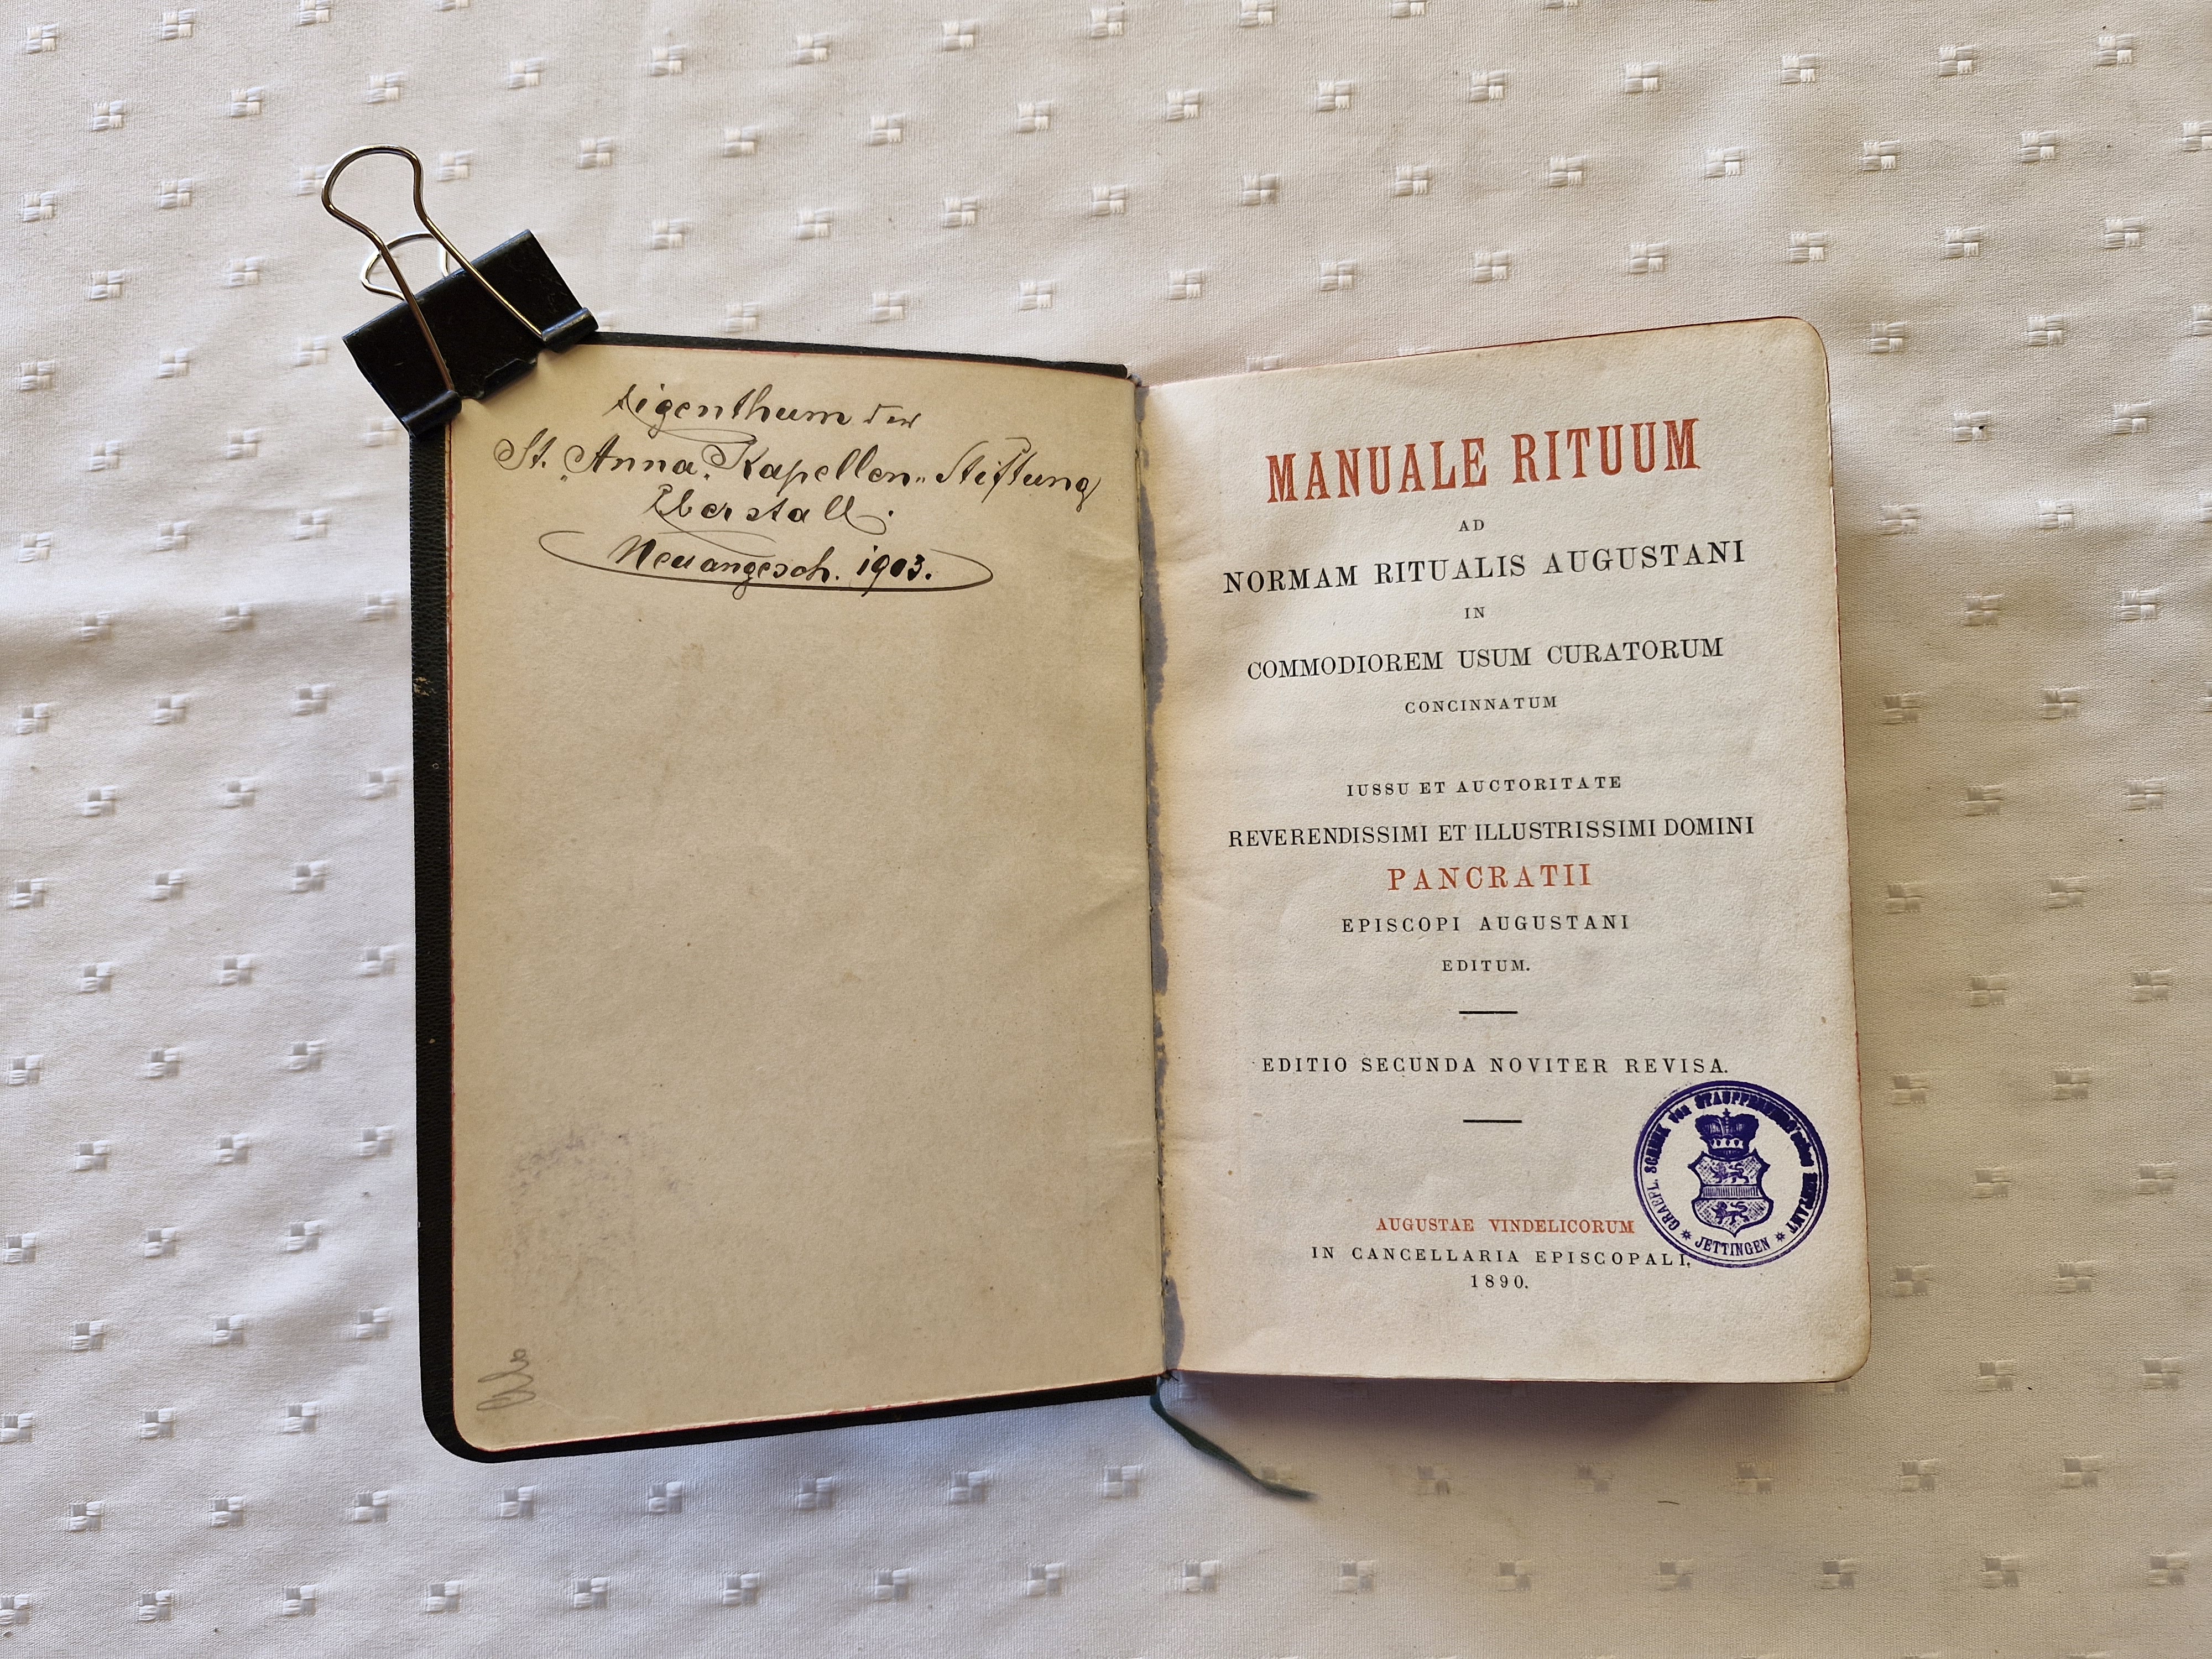 Eigenthum der
St. Anna-Kapellen-Stiftung
Eberstall.
Neuangesch. 1903.
MANUALE RITUUM
AD
NORMAM RITUALIS AUGUSTANI
IN
COMMODIOREM USUM CURATORUM
CONCINNATUM
IUSSU ET AUCTORITATE
REVERENDISSIMI ET ILLUSTRISSIMI DOMINI
PANCRATII
EPISCOPI AUGUSTANI
EDITUM.
EDITIO SECUNDA NOVITER REVISA.
GRAEFL. SCHENK von STAUFFENBERG'sches RENTAMT
* JETTINGEN *
AUGUSTAE VINDELICORUM
IN CANCELLARIA EPISCOPALI,
1890.